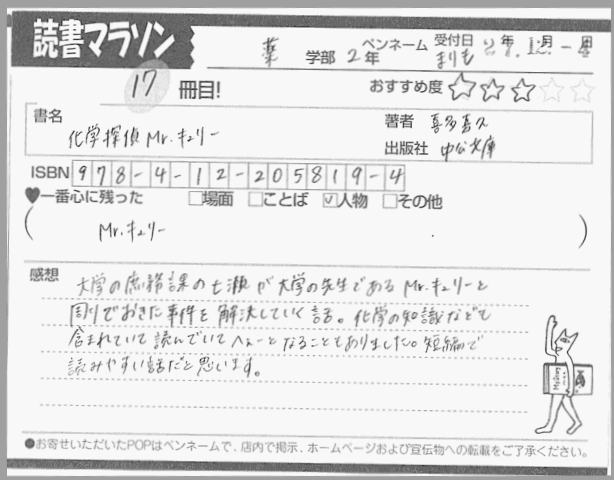 読書マラソン
薬 学部 2年 ペンネーム まりも 受付日 27年 12月 日
17 冊目!
おすすめ度 ☆☆☆☆☆
書名
化学探偵Mr.キュリー
著者 喜多喜久
出版社 中公文庫
ISBN 978-4-12-205819-4
♥一番心に残った □場面 □ことば ☑人物 □その他
( Mr.キュリー )
感想
大学の庶務課の七瀬が大学の先生であるMr.キュリーと
周りでおきた事件を解決していく話。化学の知識なども
含まれていて読んでいてへぇーとなることもありました。短編で
読みやすい話だと思います。
●お寄せいただいたPOPはペンネームで、店内で掲示、ホームページおよび宣伝物への転載をご了承ください。